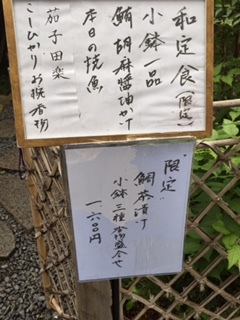 和定食(限定)
小鉢一品
鮪胡麻醤油かけ
本日の焼魚
茄子田楽
こしひかり お椀 香物
"限定"
鯛茶漬け
小鉢三種 香物盛合せ
一六〇〇円